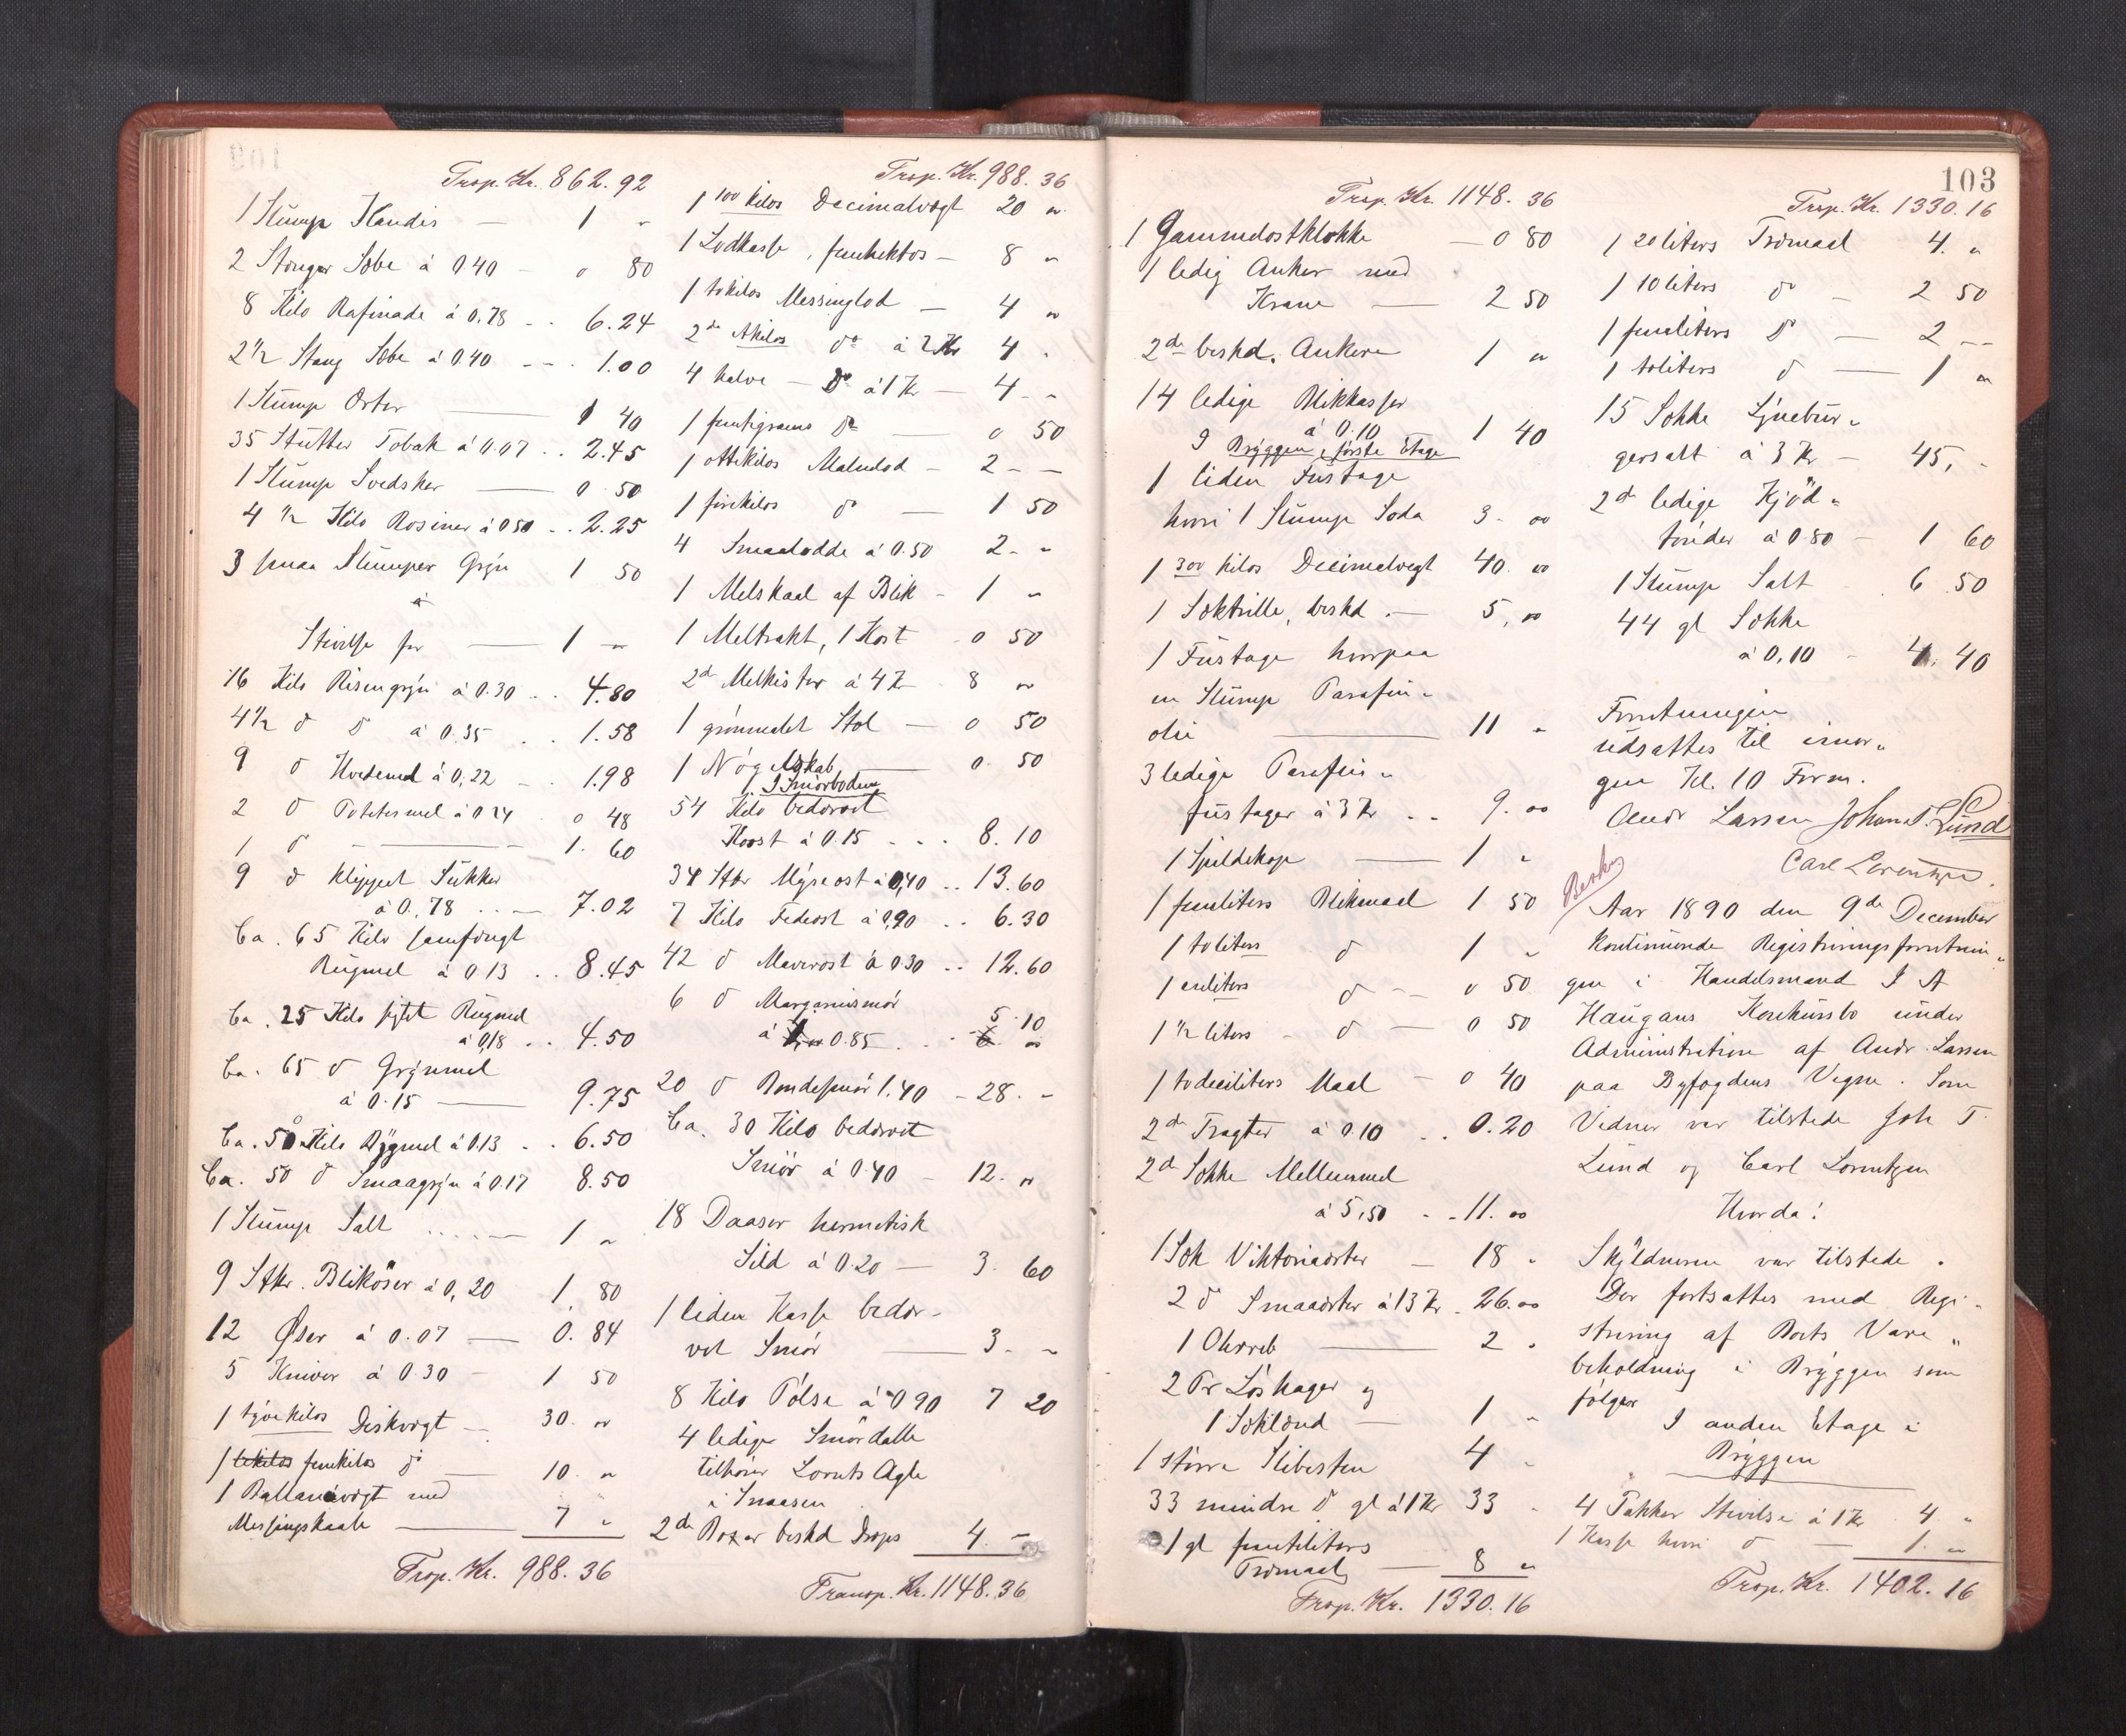 Trsp. Kr. 862.92
1 Stump Kandis — 1 "
2 Stænger Sæbe á 0.40 - 0 80
8 Kilo Rafinade á 0.78 .. 6.24
2 1/2 Stang Sæbe á 0.40 --. 1.00
1 Stump Erter — 0 40
35 Stutter Tobak á 0.07 .. 2.45
1 Stump Svedsker — 0 50
4 1/2 Kilo Rosiner á 0 50 .. 2.25
3 smaa Stumper Gryn 1 50
á
Stivelse for — 1 "
16 Kilo Risengryn á 0.30 .. 4.80
4 1/2 d d á 0.35 .. 1.58
9 d Hvedemel á 0.22 - 1.98
2 d Potetesmel á 0 24 0 48
1 d — 1. 60
9 d klippet Sukker
á 0.78 ..— 7.02
Ca. 65 Kilo samfængt
Rugmel á 0.13 .. 8.45
Ca. 25 Kilo sigtet Rugmel
á 0,18 .. 4.50
Ca. 65 d Grynmel
á 0.15 — 9.75
Ca. 50 Kilo Bygmel á 0.13 .. 6.50
Ca. 50 d Smaagryn á 0.17 8.50
1 Stump Salt ....— 1 "
9 Stkr. Bliköser á 0,20 1. 80
12 Øser á 0.07 — 0. 84
5 Kniver á 0 30 - 1 50
1 tyvekilos Diskvægt — 30. "
1 tokilos femkilos do — 10. "
1 Ballancevægt med
Messingskaale — 7 "
Trsp. Kr. 988.36
Trsp. Kr. 988.36
1 100 kilos Decimalvægt 20 "
1 Lodkasse, femhektos — 8 "
1 tokilos Messinglod — 4 "
2de 1kilos do á 2 Kr 4 "
4 halve — Do á 1 Kr — 4 - "
1 femtigrams Do — 0 50
1 ottekilos Malmlod — 2 - —
1 firekilos do — 1 50
4 Smaalodde á 0.50 2 - "
1 Melskaal af Blik - 1 "
1 Meltrakt, 1 Kost - 0 50
2de Melkister á 4 Kr - 8 "
1 grönmalet Stol — 0 50
1 Nögelskab — 0 50
I Smörboden
54 Kilo bedærvet
Koost á 0.15 ... 8.10
34 Stkr Myseost á 0,40 .. 13.60
7 Kilo Fedeost á 0,90 .. 6.30
42 d Maverost á 0 30 .. 12.60
6 d Margarinsmör
5.10
á 1,00 0.85 ... 6. "
20 d Bondesmör 1.40 - 28. -
Ca. 30 Kilo bedærvet
Smör á 0.40 - 12. "
18 Daaser hermetisk
Sild á 0.20 — 3. 60
1 liden Kasse bedær-
vet Smör — 3. "
8 Kilo Pölse á 0 90 7 20
4 ledige Smördalle
tilhører Lornts Agle
i Snaasen
2de Boxer beskd Drops 4. —
Transp. Kr. 1148.36
103
Trsp. Kr. 1148.36
1 Gammelostklokke — 0 80
1 ledig Anker med
Krane — 2 50
2de beskd. Ankere 1 "
14 ledige Blikkasser
á 0.10 1 40
I Bryggen, første Etage
1 liden Fustage
hvori 1 Stump Soda 3. "
1 300 kilos Decimalvægt 40. "
1 Sæktrille, beskd. — 5. "
1 Fustage hvorpaa
en Stump Parafin-
olie — 11 "
3 ledige Parafin-
fustager á 3 Kr .. 9. "
1 Spildekop — 1 "
1 femliters Blikmaal 1 50
1 toliters d 1 "
1 enliters d — 0 50
1 1/2 liters - d — 0 50
1 todeciliters Maal — 0 40
2de Tragter á 0.10 .. 0.20
2de Sække Mellemmel
á 5,50 - - 11. "
1 Sæk Viktoriaerter — 18 "
2 d Smaaerter á 13 Kr. 26."
1 Ohrreb — 2 "
2 Pr Löshager og
1 Sæklænd — 1 "
1 større Slibesten 4 "
33 mindre D gl á 1 Kr 33 "
1 gl femtiliters
Træmaal — 8 "
Trsp. Kr. 1330.16
Trsp. Kr. 1330.16
1 20 liters Træmaal 4. "
1 10 liters do — 2 50
1 femliters Do — 2 --
1 toliters d — 1 "
15 Sække Lynebur-
gersalt á 3 Kr — 45, -
2de ledige Kjöd-
tönder á 0.80 — 1 60
1 Stump Salt . 6 50
44 gl Sække
á 0,10 - 4. 40
Forretningen
udsattes til imor-
gen Kl. 10 Form.
Andr Larssen Johan T. Lund
Carl Lorentzen.
Aar 1890 den 9de December
kontinuerede Registreringsforretnin-
gen i Handelsmand J A
Haugans Konkursbo under
Administration af Andr. Larssen
paa Byfogdens Vegne. Som
Vidner var tilstede Joh T.
Lund og Carl Lorentzen
Hvorda:
Skyldneren var tilstede.
Der fortsattes med Regi-
strering af Boets Vare-
beholdning i Bryggen som
følger
I anden Etage i
Bryggen
4 Pakker Stivelse á 1 Kr 4. "
1 Kasse hvori d — 1. "
Trsp. Kr. 1402.16